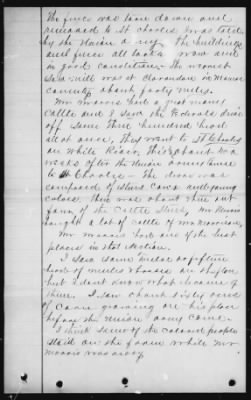 The fence was torn down and
removed to St Charles Ark. later
by the Union army. The buildings
and fence all look new and
in good condition. The nearest
saw-mill was at Clarendon in Monroe
county about forty miles.
Mr Morris had a great many
cattle and I saw the Federals drive
off some three hundred head
all at once, they went to St Charles
on White River, this about two
weeks after the Union Army came
to St Charles – The drove was
composed of steers cows and young
calves. There was about
of the cattle steers, Mr Morris
bought a lot of cattle of
Mr Morris had one of the best
places in that section.
I saw some twelve or fifteen
head of mules & horses on the farm
but I dont know what became of
them. I saw about sixty acres
of corn growing on his place
before the Union army came.
I think some of the colored people
staid on the farm while Mr
Morris was away